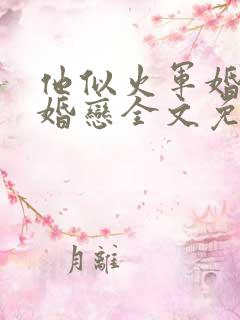 他似火军婚
婚恋全文免
月離